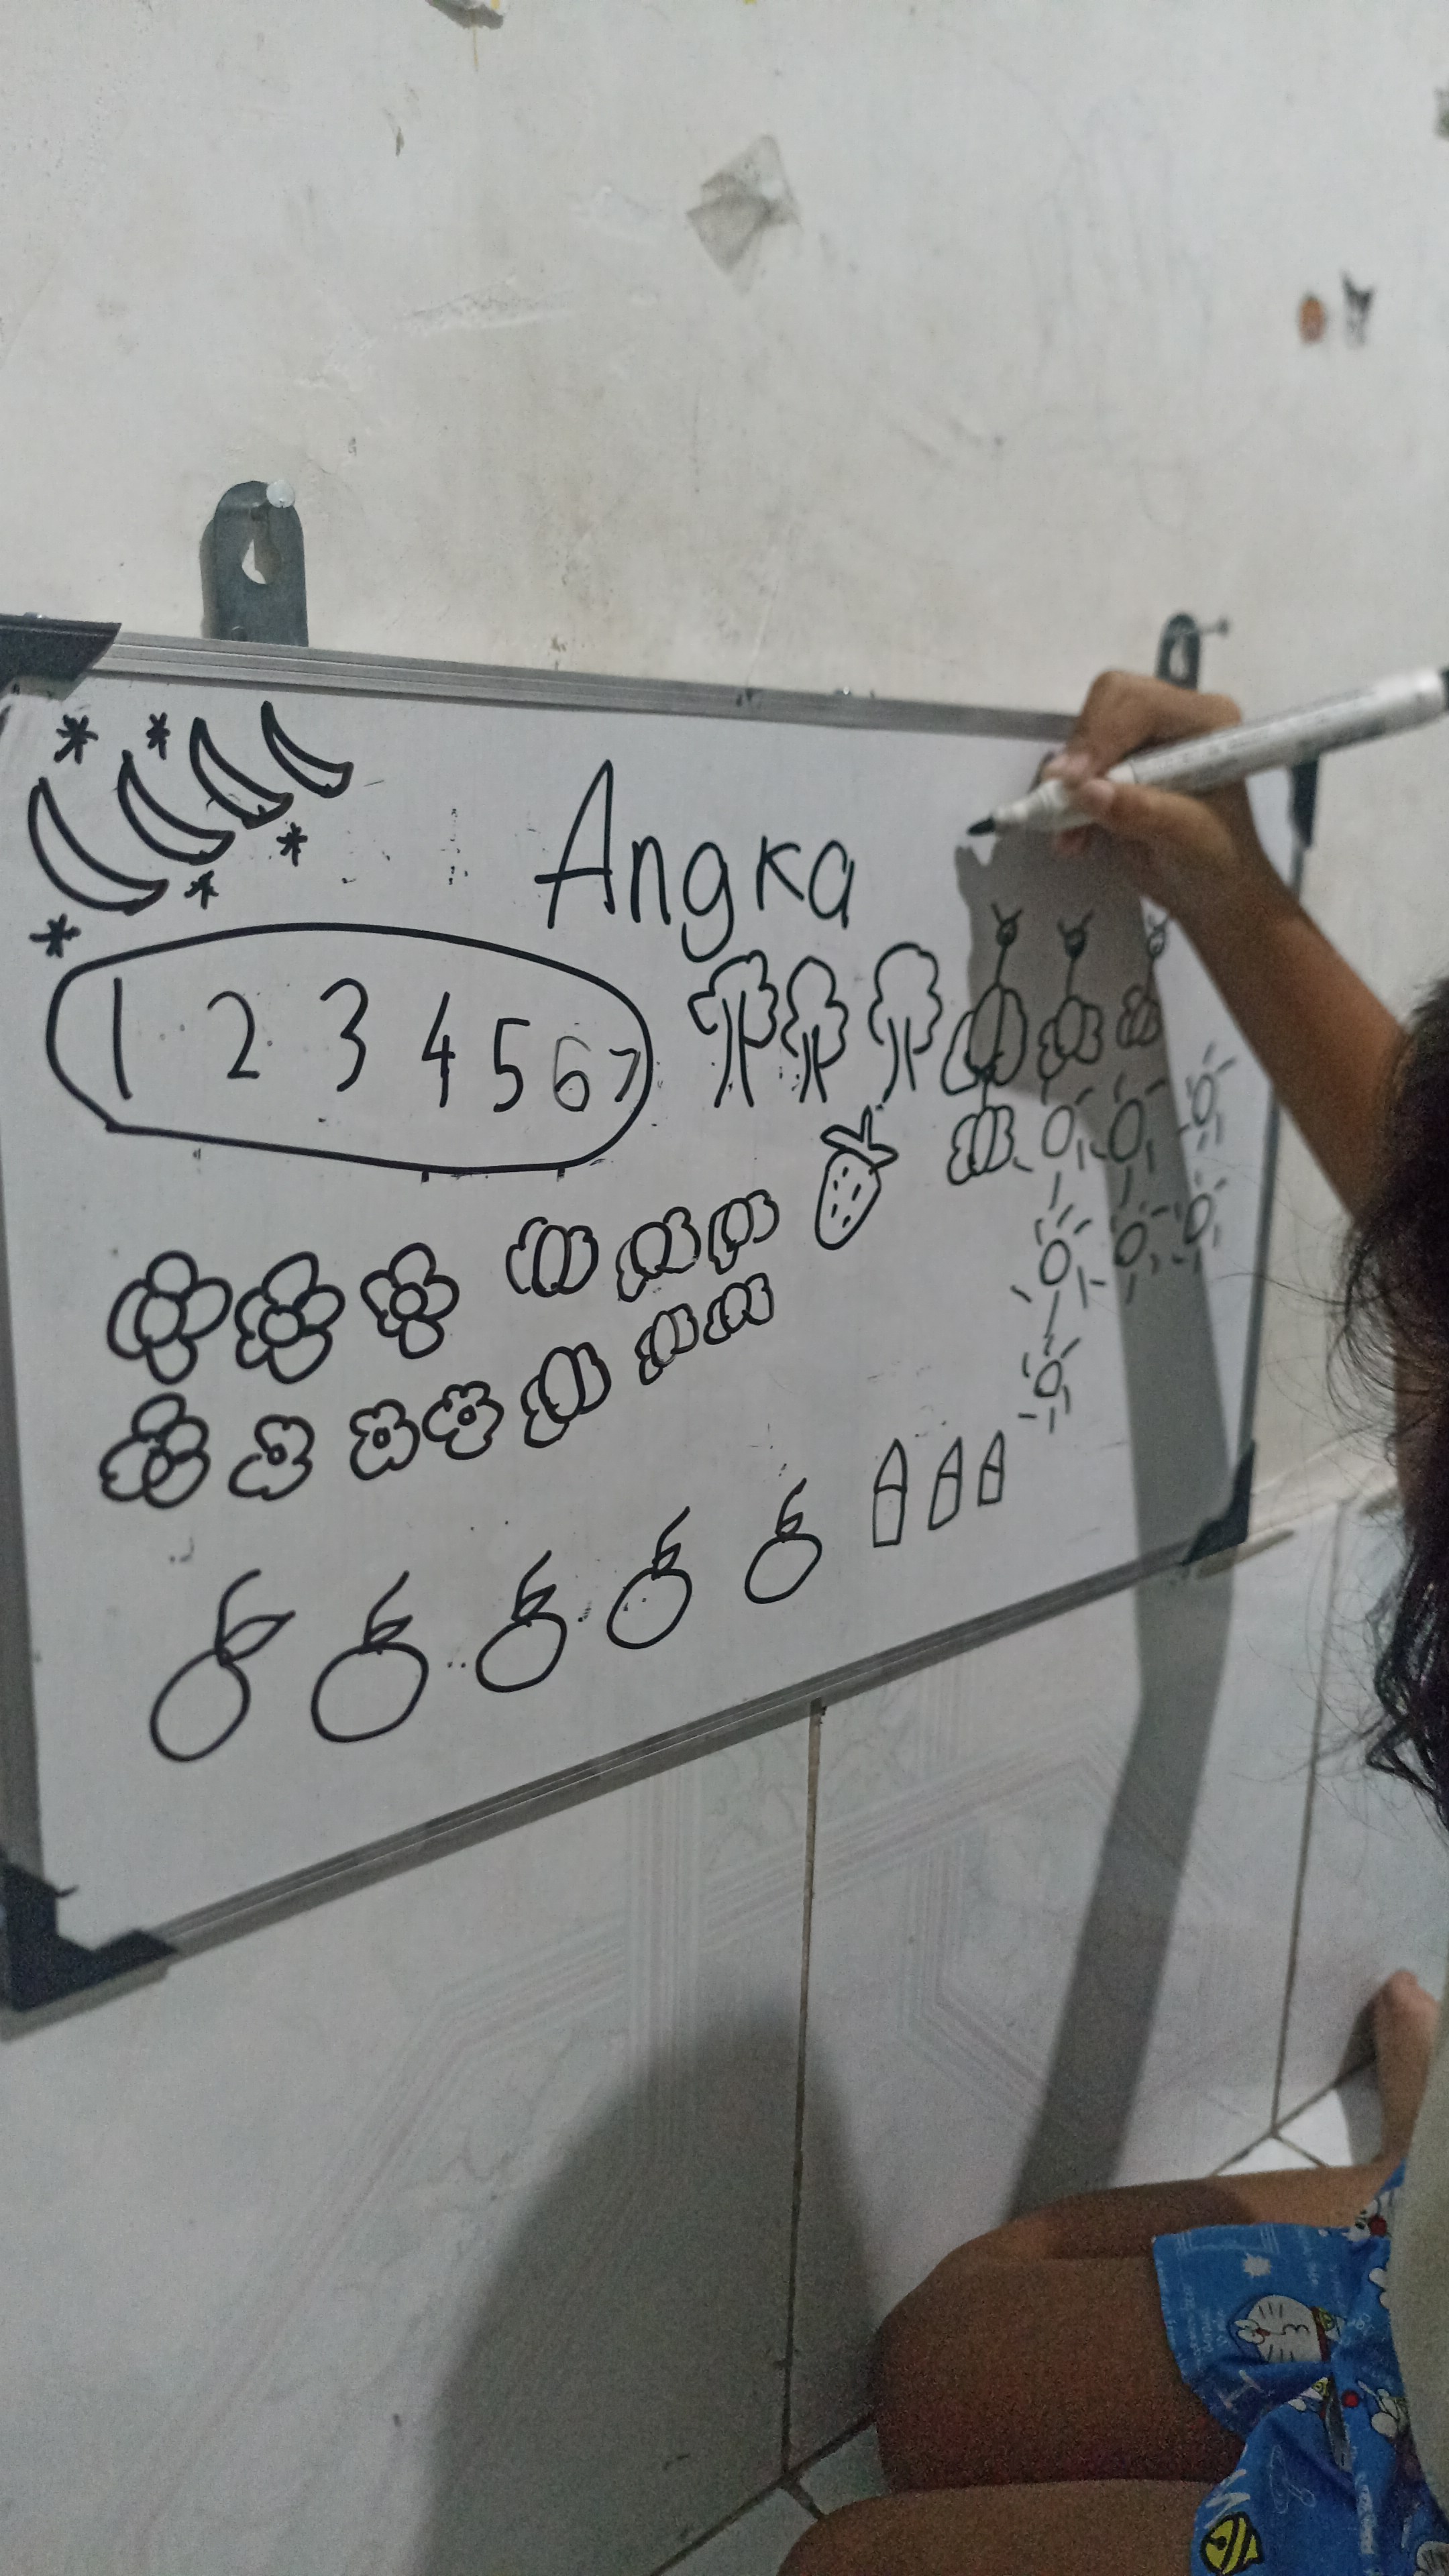 Angka
1 2 3 4 5 6 7